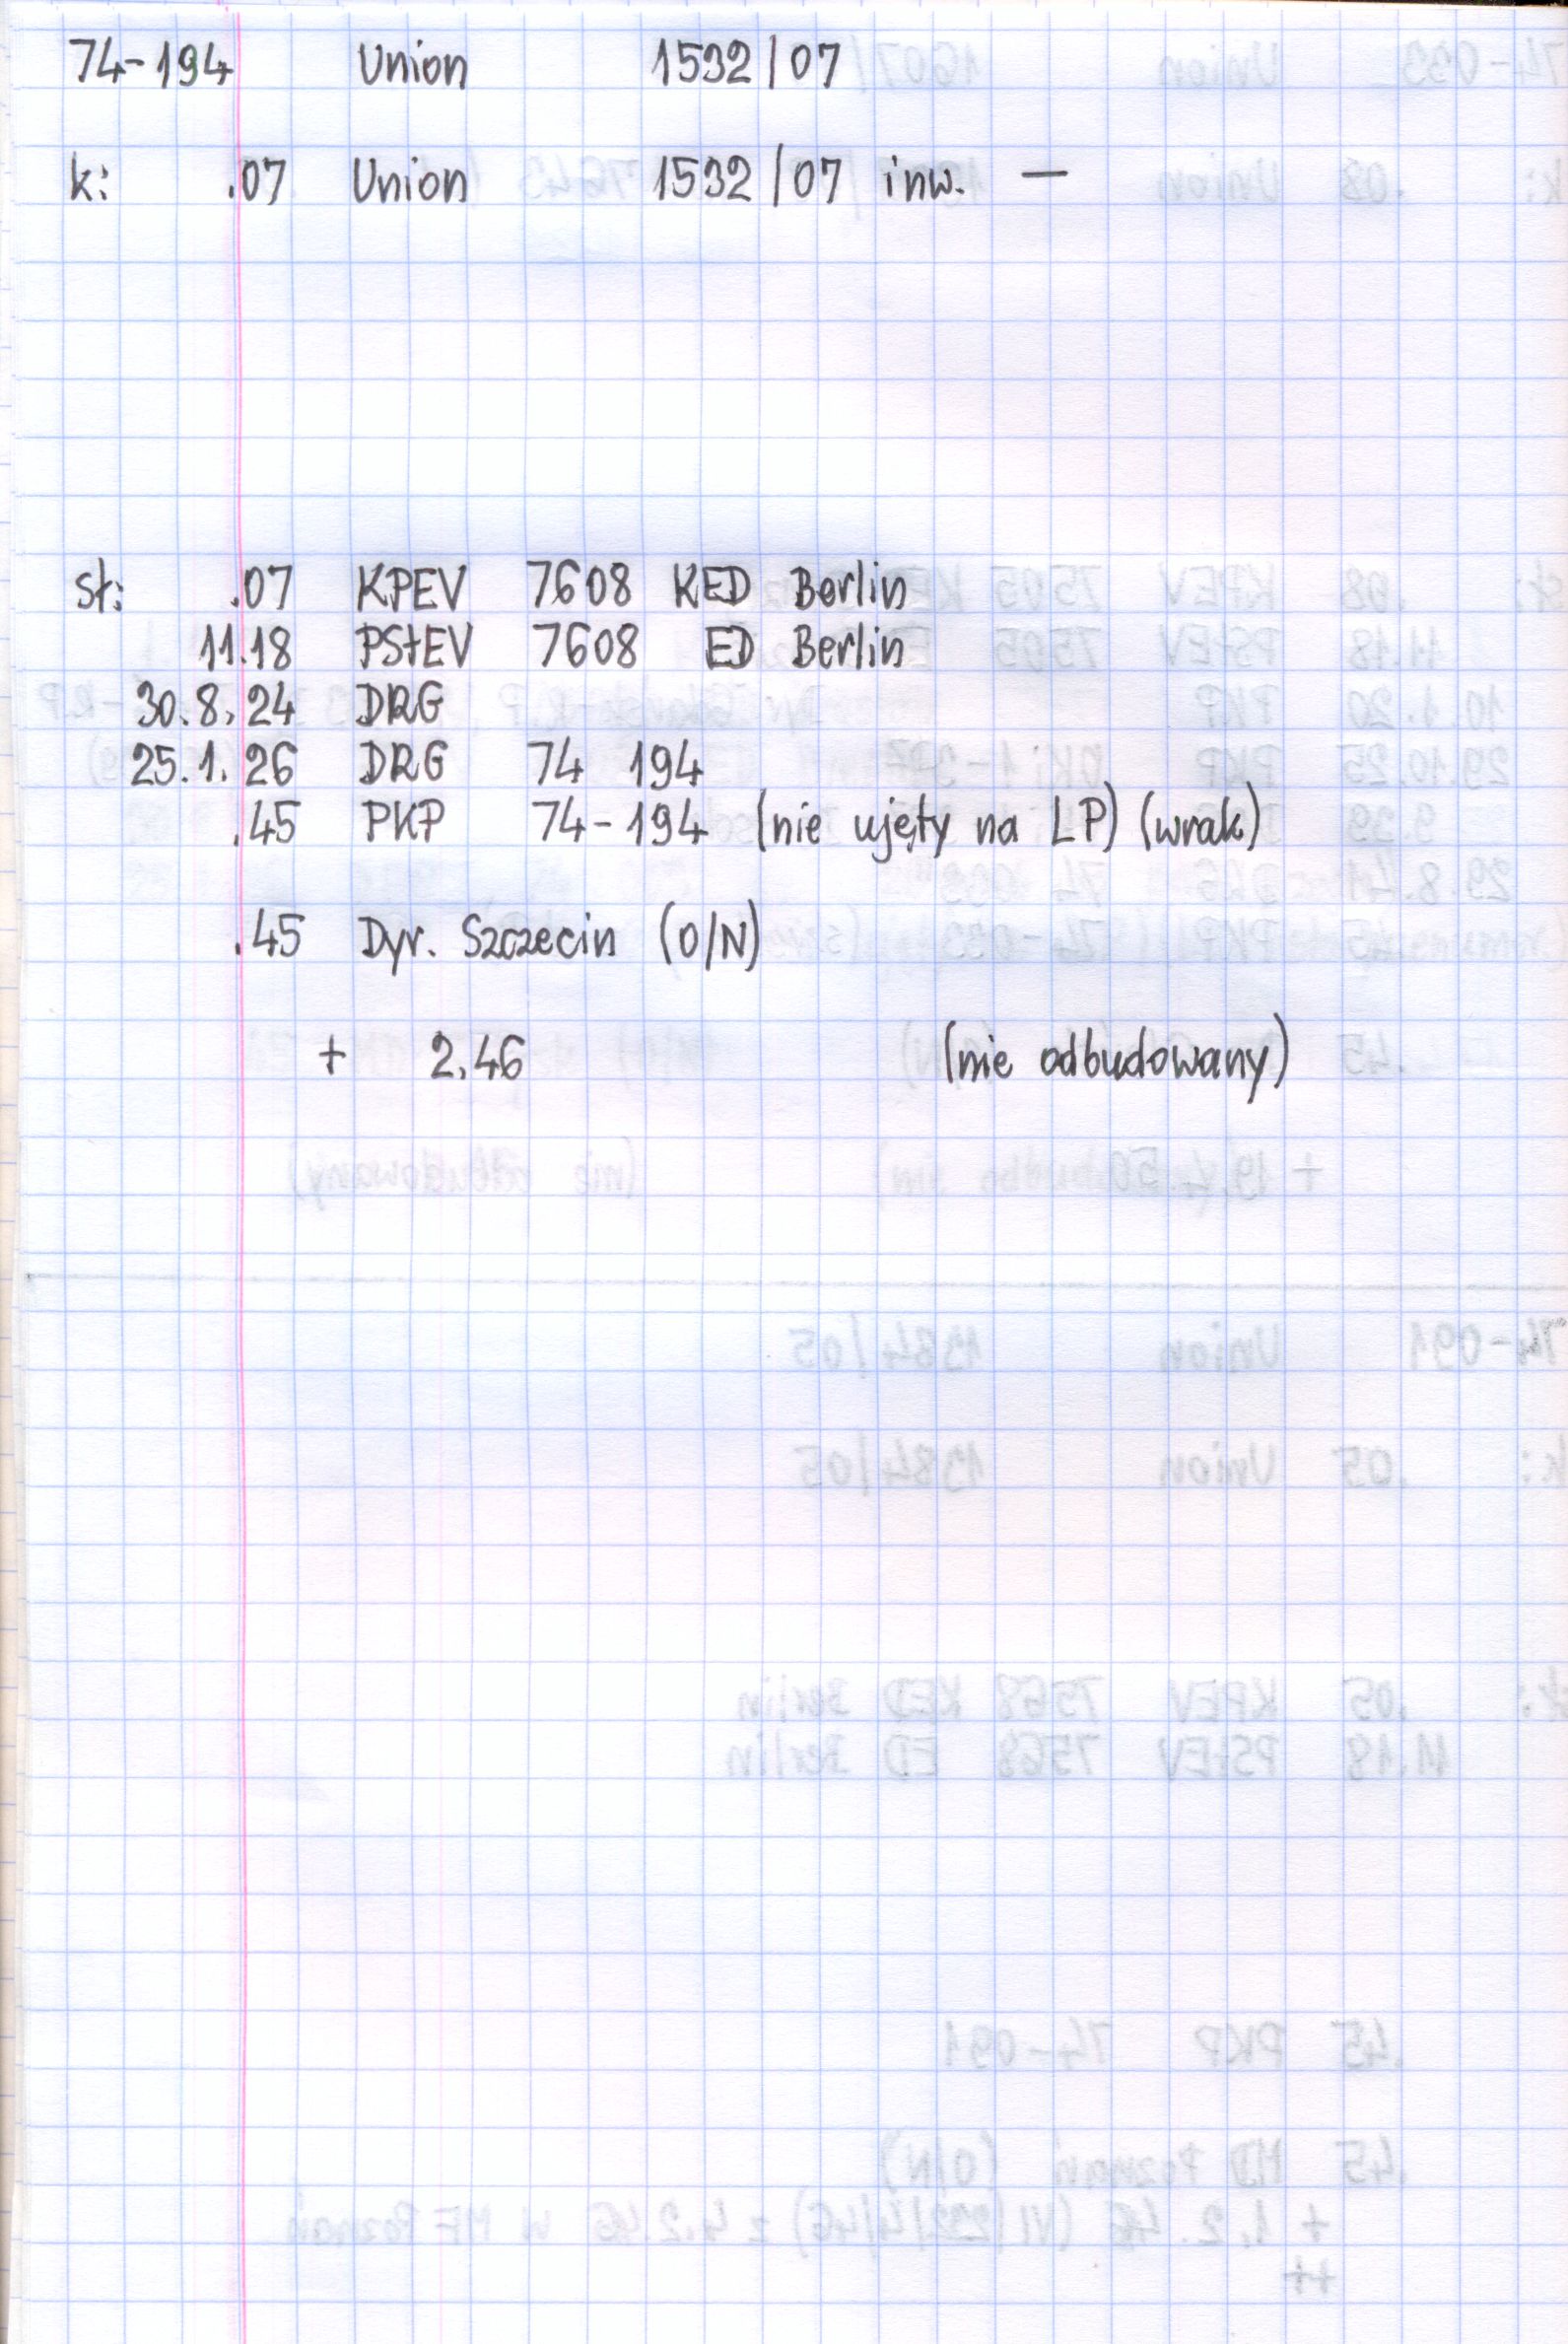 74-194 Union 1532/07
k: .07 Union 1532/07 inw. —
st: .07 KPEV 7608 KED Berlin
11.18 PStEV 7608 ED Berlin
30.8.24 DRG
25.1.26 DRG 74 194
.45 PKP 74-194 (nie ujęty na LP) (wrak)
.45 Dyr. Szczecin (O/N)
+ 2.46 (nie odbudowany)